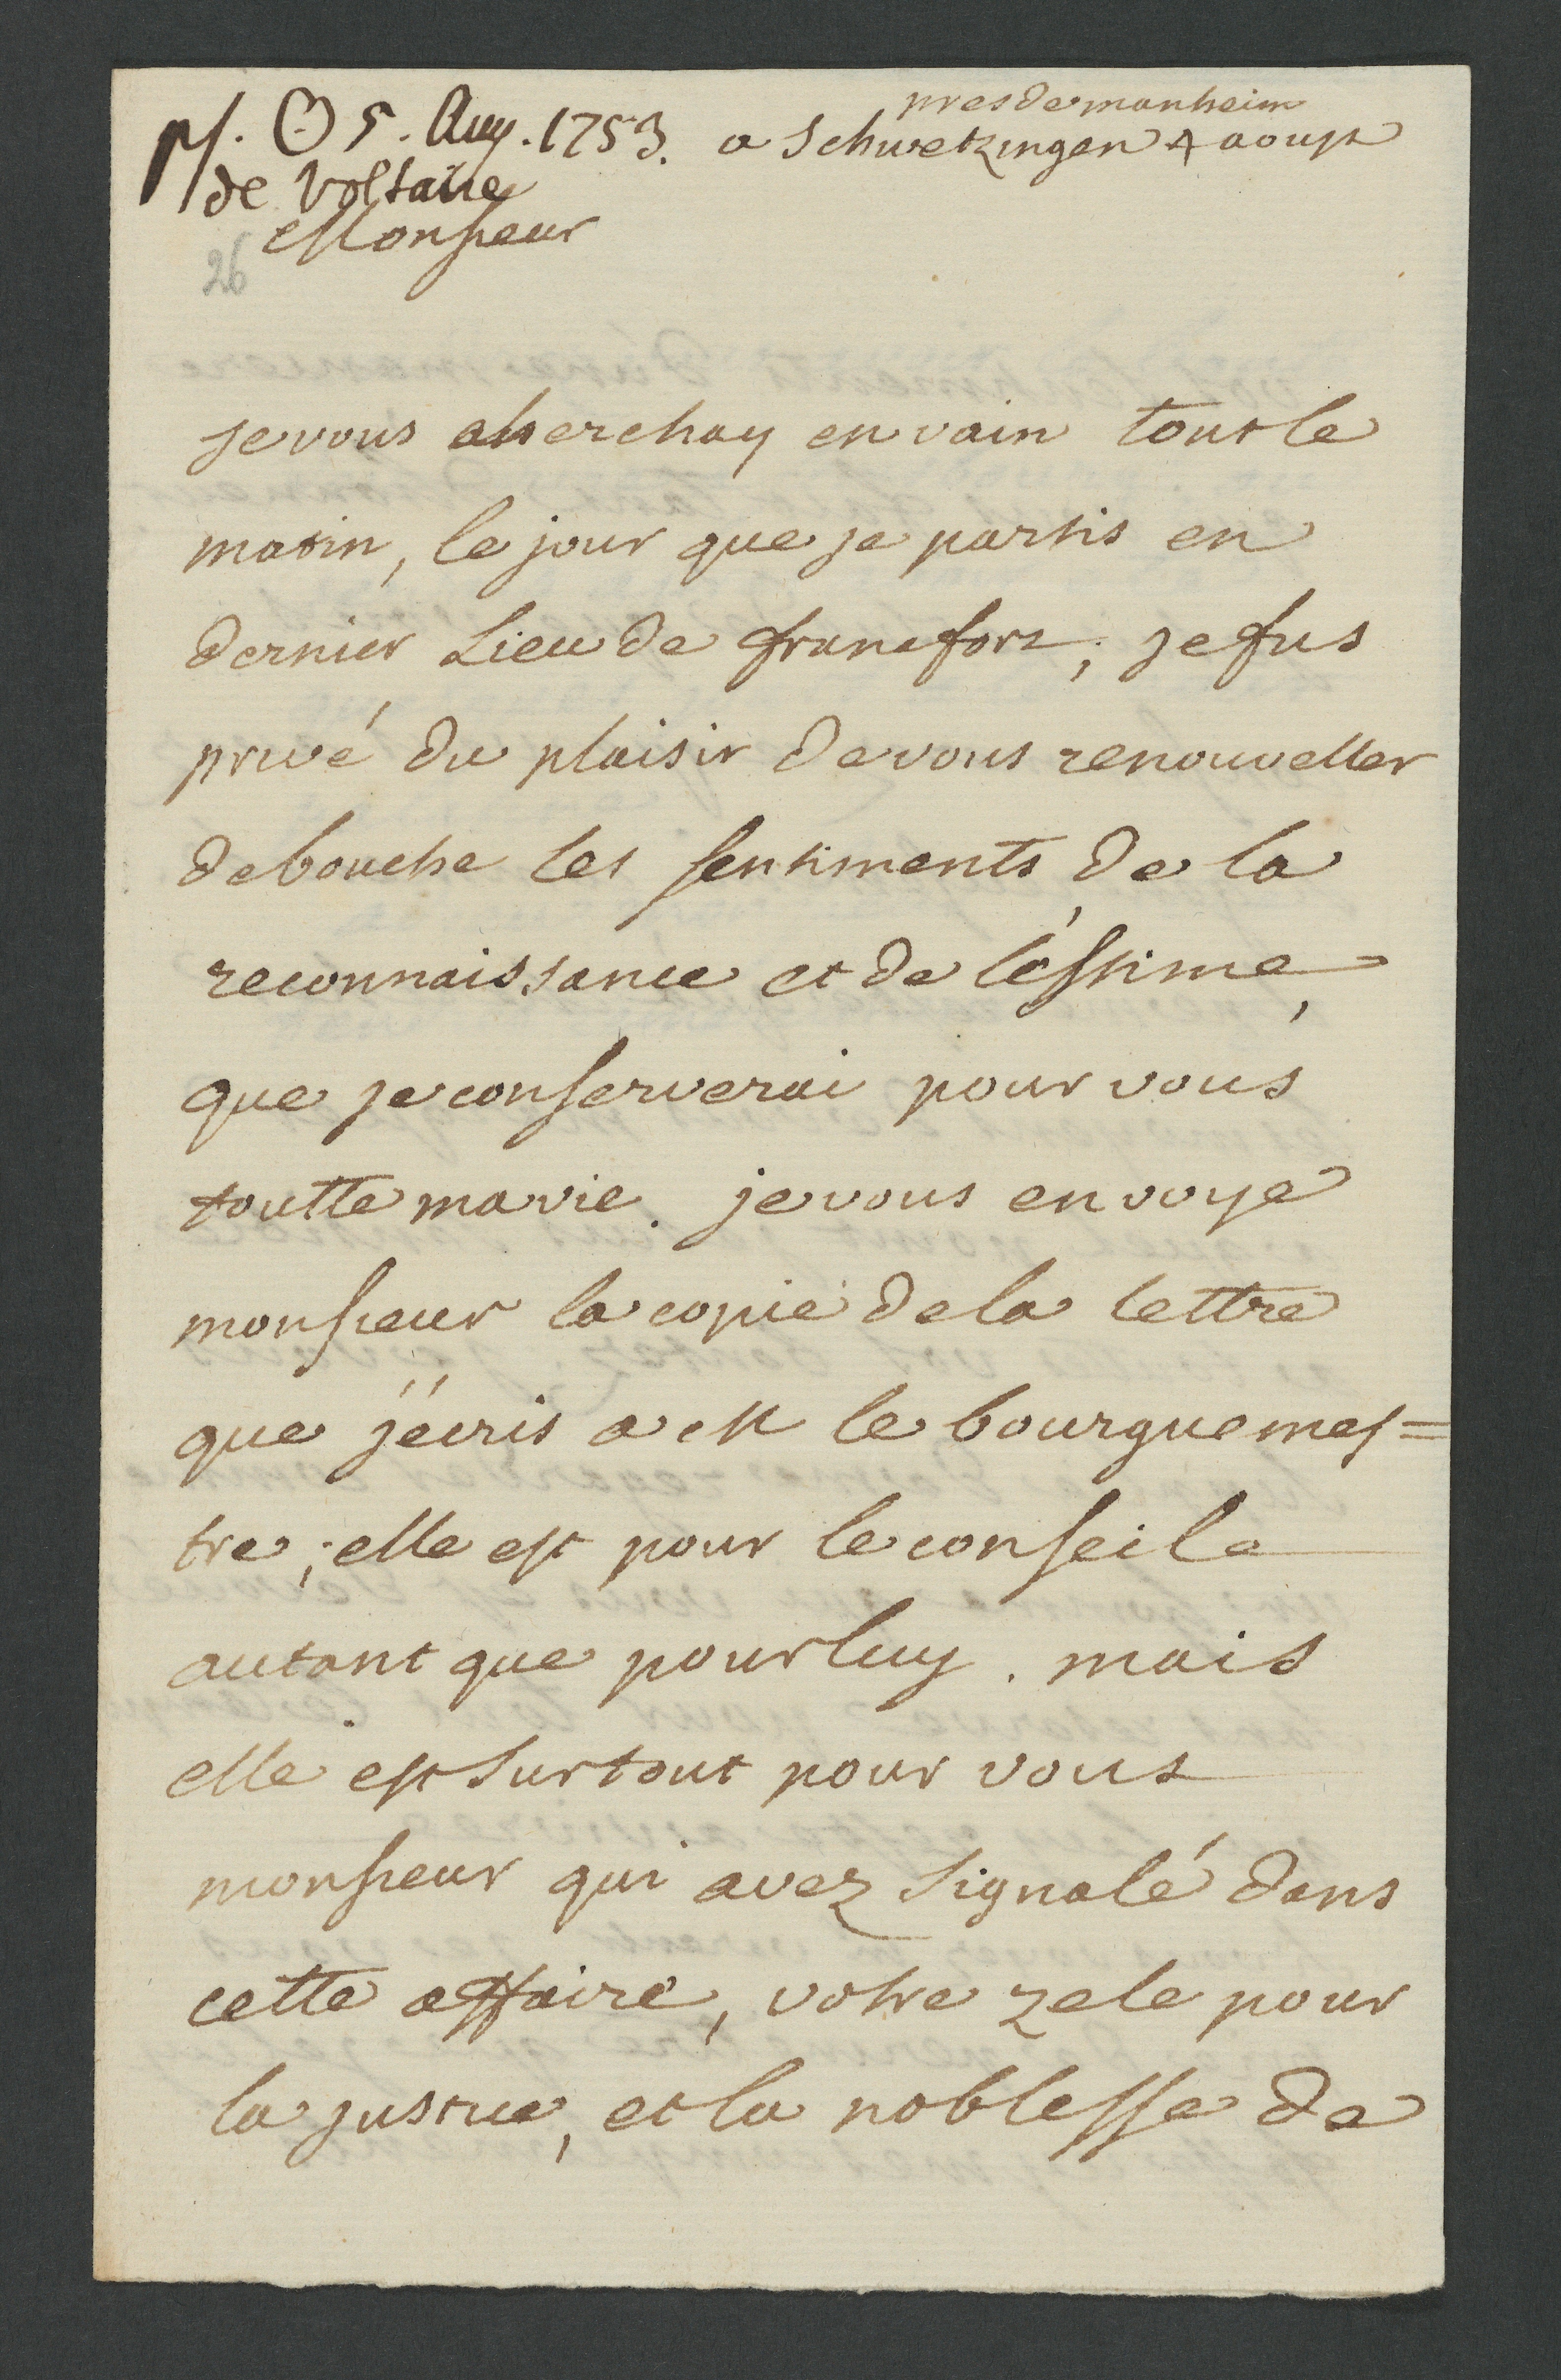 pres de manheim
ps. ☉ 5. Aug. 1753. a Schwetzingen 4 aoust
de Voltaire
Monsieur
26
je vous cherchay en vain tout le
matin, le jour que je partis en
dernier Lieu de francfort; je fus
privé du plaisir de vous renouveller
de bouche les sentiments de la
reconnaissance et de l'éstime,
que je conserverai pour vous
toutte ma vie. je vous envoye
monsieur la copie de la lettre
que j'écris a M le bourguemes=
tre; elle est pour le conseil
autant que pour luy. mais
elle est surtout pour vous
monsieur qui avez signalé dans
cette affaire, votre zele pour
la justice, et la noblesse de